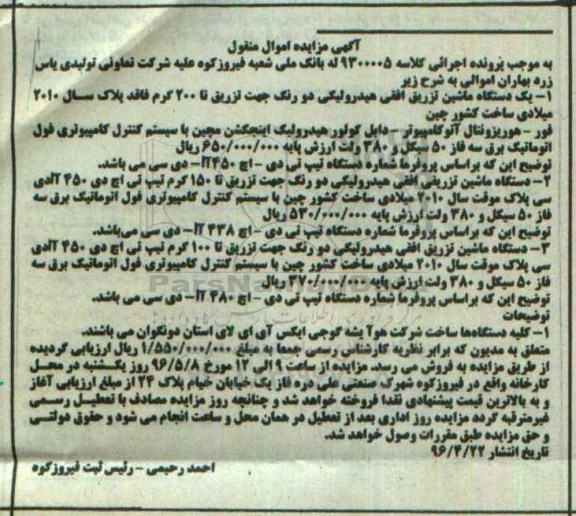 آگهی مزایده اموال منقول
به موجب پرونده اجرائی کلاسه ۹۳۰۰۰۰۵ له بانک ملی شعبه فیروزکوه علیه شرکت تعاونی تولیدی یاس
زرد بهاران اموالی به شرح زیر
۱- یک دستگاه ماشین تزریق افقی هیدرولیکی دو رنگ جهت تزریق تا ۲۰۰ گرم فاقد پلاک سال ۲۰۱۰
میلادی ساخت کشور چین
فور - هوریزونتال آتوکامپیوتر - دابل کولور هیدرولیک اینجکشن مچین با سیستم کنترل کامپیوتری فول
اتوماتیک برق سه فاز ۵۰ سیکل و ۳۸۰ ولت ارزش پایه ۶۵۰/۰۰۰/۰۰۰ ریال
توضیح این که براساس پروفرما شماره دستگاه تیپ تی دی - اچ ۴۵۰آآ- دی سی می باشد.
۲- دستگاه ماشین تزریقی افقی هیدرولیکی دو رنگ جهت تزریق تا ۱۵۰ گرم تیپ تی اچ دی ۴۵۰ آآدی
سی پلاک موقت سال ۲۰۱۰ میلادی ساخت کشور چین با سیستم کنترل کامپیوتری فول اتوماتیک برق سه
فاز ۵۰ سیکل و ۳۸۰ ولت ارزش پایه ۵۳۰/۰۰۰/۰۰۰ ریال
توضیح این که براساس پروفرما شماره دستگاه تیپ تی دی - اچ ۴۳۸ آآ- دی سی می‌باشد.
۳- دستگاه ماشین تزریق افقی هیدرولیکی دو رنگ جهت تزریق تا ۱۰۰ گرم تیپ تی اچ دی ۴۵۰ آآدی
سی پلاک موقت سال ۲۰۱۰ میلادی ساخت کشور چین با سیستم کنترل کامپیوتری فول اتوماتیک برق سه
فاز ۵۰ سیکل و ۳۸۰ ولت ارزش پایه ۳۷۰/۰۰۰/۰۰۰ ریال
توضیح این که براساس پروفرما شماره دستگاه تیپ تی دی - اچ ۳۸۰ آآ- دی سی می باشد.
توضیحات
۱- کلیه دستگاه‌ها ساخت شرکت هوآ یشه گوجی ایکس آی ای لای استان دونگوان می باشند.
متعلق به مدیون که برابر نظریه کارشناس رسمی جمعا به مبلغ ۱/۵۵۰/۰۰۰/۰۰۰ ریال ارزیابی گردیده
از طریق مزایده به فروش می رسد. مزایده از ساعت ۹ الی ۱۲ مورخ ۹۶/۵/۸ روز یکشنبه در محل
کارخانه واقع در فیروزکوه شهرک صنعتی علی دره فاز یک خیابان خیام پلاک ۲۴ از مبلغ ارزیابی آغاز
و به بالاترین قیمت پیشنهادی نقدا فروخته خواهد شد و چنانچه روز مزایده مصادف با تعطیل رسمی
غیرمترقبه گردد مزایده روز اداری بعد از تعطیل در همان محل و ساعت انجام می شود و حقوق دولتی
و حق مزایده طبق مقررات وصول خواهد شد.
تاریخ انتشار ۹۶/۴/۲۲
احمد رحیمی - رئیس ثبت فیروزکوه